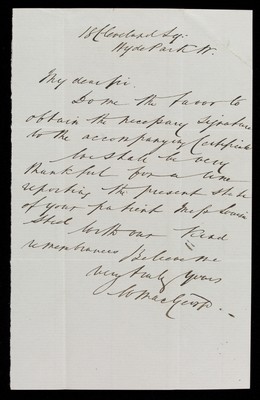 18 Cleveland Sq:
Hyde Park W.
My dear Sir.
Do me the favor to
obtain the necessary Signature
to the accompanying Certificate
We shall be very
thankful for a line
reporting the present state
of your patient Miss Louisa
With our Kind
remembrances Believe me
very truly yours